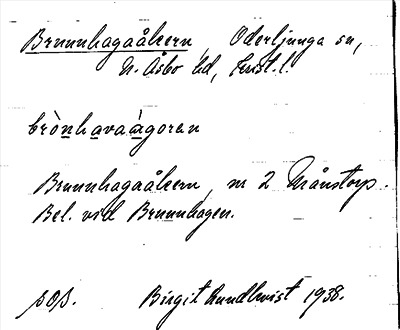 Brunnhagaåkern, Oderljunga sn,
N. Åsbo hd, Krist. l.
brònhavaàgoren
Brunnhagaåkern, nr 2 Månstorp.
Bel. vid Brunnhagen.
sos. Birgit Rundkvist 1938.